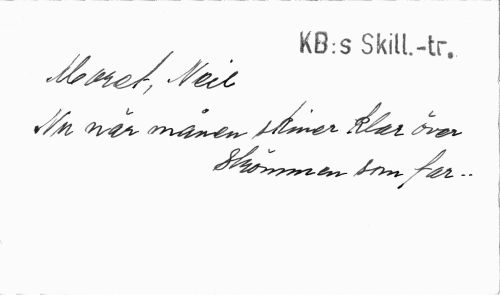 KB:s Skill.-tr.
Moret, Neil
Nu när månen skiner klar över
Strömmen som far..